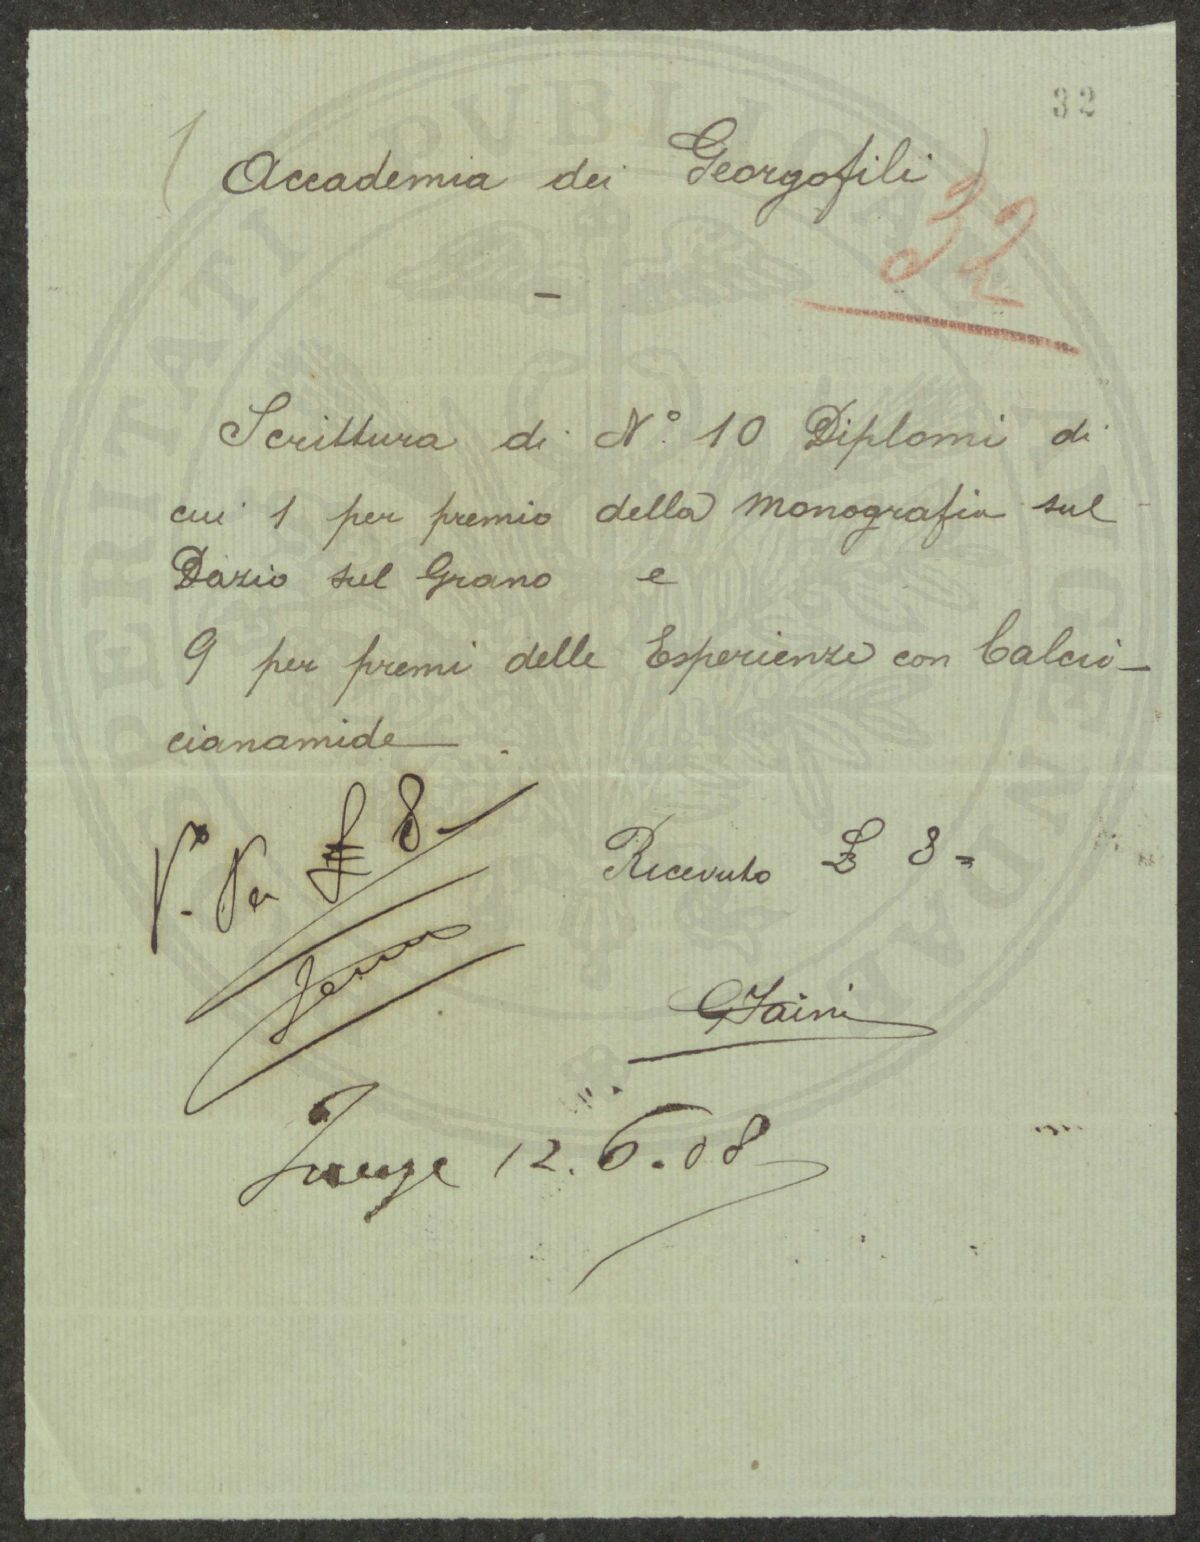 32
Accademia dei Georgofili
32
Scrittura di N.° 10 Diplomi di
cui 1 per premio della Monografia sul
Dazio sul Grano e
9 per premi delle Esperienze con Calcio-
cianamide.
V.° Per £ 8.-
Ricevuto £ 8=
Firenze 12.6.08
PROSPERITATI PVBLICAE AVGENDAE